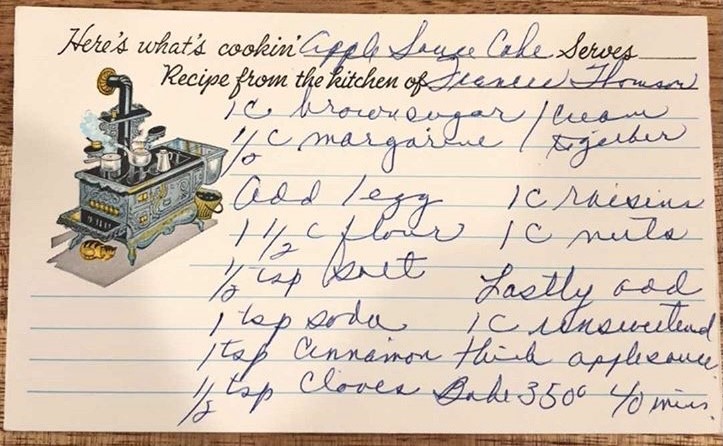 Here's what's cookin' Apple Sauce Cake Serves
Recipe from the kitchen of Frances Thomson
1 C brown sugar / Cream
1/2 C margarine / together
add 1 egg 1 C raisins
1 1/2 C flour 1 C nuts
1/2 tsp salt Lastly add
1 tsp soda 1 C unsweetend
1 tsp Cinnamon thick applesauce
1/2 tsp Cloves Bake 350° 40 mins.